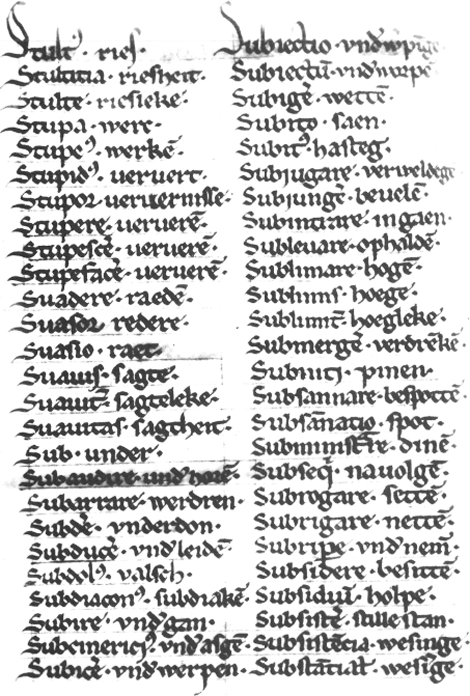 Stultꝰ · ries ·
Stultitia · riesheit ·
Stulte · riesleke ·
Stupa · werc ·
Stupeꝰ · werkē ·
Stupidꝰ · ververt ·
Stupor ververnisse ·
Stupere ververē ·
Stupescē · ververē ·
Stupefacē · ververē ·
Suadere · raedē ·
Suasor redere ·
Suasio · raet ·
Suavis · sagte ·
Suavit̄ · sagteleke ·
Suavitas · sagtheit ·
Sub · under ·
Subaudire · vnd' horē ·
Subarrare · werdren ·
Subdē · vnderdon ·
Subducē · vnd' leidē ·
Subdolꝰ · valsch ·
Subdiaconꝰ · subdiakē ·
Subire · vnd' gan ·
Subcinericiꝰ · vnd' asgē ·
Subicē · vnd' werpen ·
Subiectio · vnd' w'pige
Subiectū · vnd' worpē
Subigē · wettē ·
Subito · saen ·
Subitꝰ · hasteg ·
Subjugare · verweldege
Subjungē · bevelē ·
Subintrare · in gaen ·
Sublevare · ophaldē ·
Sublimare · hogē ·
Sublimis · hoege ·
Sublimit̄ · hoegleke ·
Submergē · verdrēkē ·
pinen ·
Subsannare · bespottē ·
Subsānatio · spot ·
Subministr̄e · dinē ·
Subseq̄ · navolgē ·
Subrogare · settē ·
Subrigare · nettē ·
Subripe · vnd' nem̄ ·
Subsidere · besittē ·
Subsidiū · holpe ·
Subsistē · stille stan ·
Subsistētia · wesinge ·
Substātial' · wesīge ·